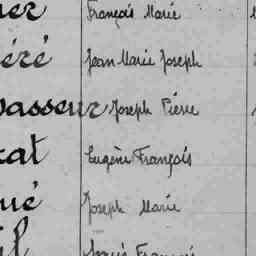 ner François Marie
éré Jean Marie Joseph
vasseur Joseph Pierre
cat Eugène François
ué Joseph Marie
il Louis François